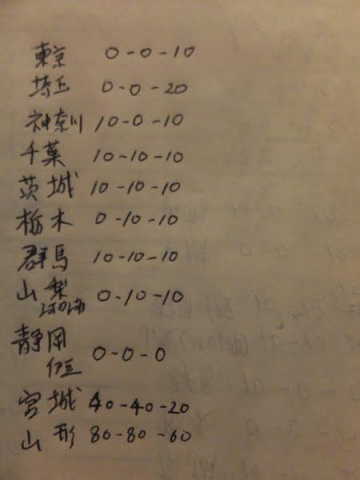 東京 0-0-10
埼玉 0-0-20
神奈川 10-0-10
千葉 10-10-10
茨城 10-10-10
栃木 0-10-10
群馬 10-10-10
山梨 0-10-10
静岡 伊豆 0-0-0
宮城 40-40-20
山形 80-80-60